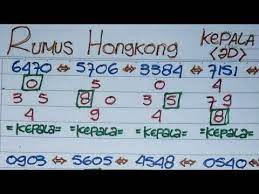 Rumus Hongkong KEPALA
<2D>
6470 ⇔ 5706 ⇔ 3384 ⇔ 7151
0 5 0 4
3 5 8 0 3 5 7 9
4 9 4 8
=KEPALA= =KEPALA= =KEPALA= =KEPALA=
0903 ⇔ 5605 ⇔ 4548 ⇔ 0540